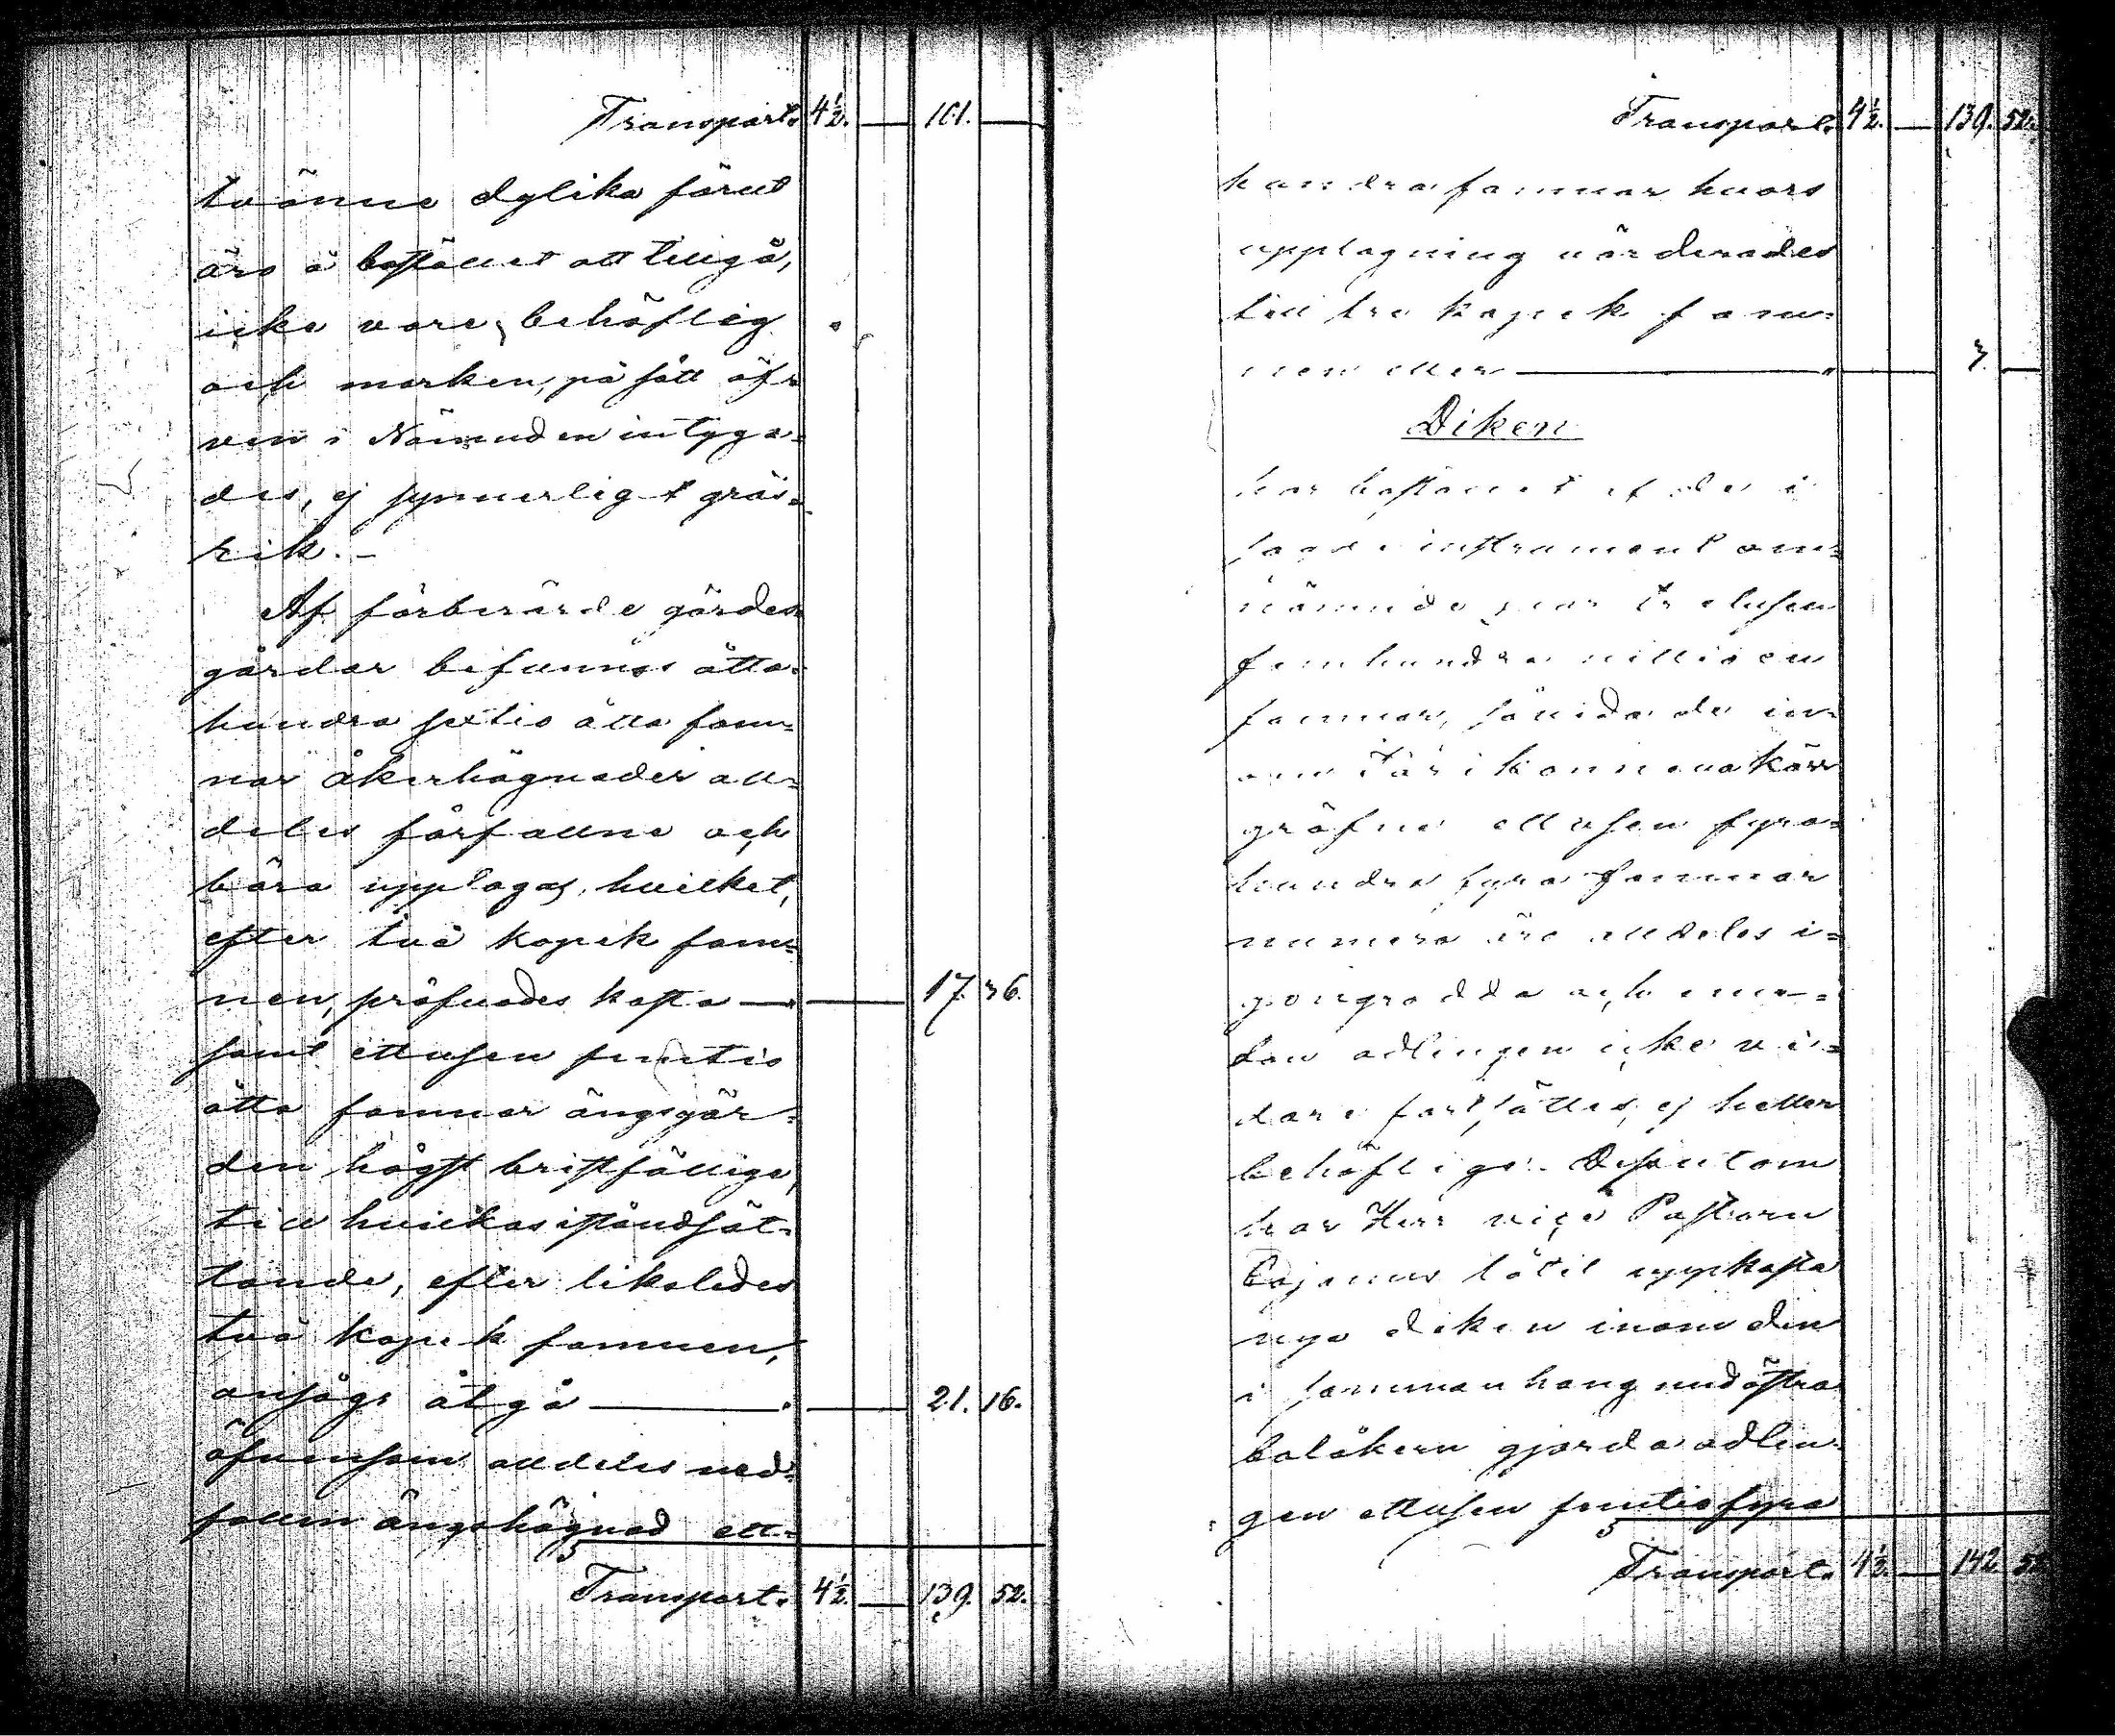 Transport. 4½. — 101. —
tvänne dylika förut
äro å bostället att tillgå,
icke vore behöflig
och marken, på sått äf-
ven i Nämnden intyga-
des, ej synnerligt gräs-
rik. —
Af förberörde gärdes
gårdar befunnos åtta-
hundra sextio åtta fam-
nar åkerhägnader all-
deles förfallne och
böra upptagas, hvilket,
efter två kopek fam-
nen, pröfvades kosta — 17. 36.
samt ettusen femtio
åtta famnar ängsgär-
den högst bristfällige,
till hvilkas iståndsät-
tande, efter likaledes
två kopek famnen,
ansågs åtgå — 21. 16.
äfvensom alldeles ned-
fallen ängshägnad ett-
Transport. 4½. — 139. 52.
Transport. 4½. — 139. 52.
hundra famnar hvars
upptagning värderades
till tre kopek fam-
nen eller — 3. —
Diken
har bostället af de i
instrument om-
nämnde tusen
femhundra nittioen
famnar, de in-
om kärr
gräfne ettusen fyra-
hundra fyra famnar
numera äro alldeles i-
gengrodda och eme-
dan odlingen icke vi-
dare fortsättes, ej heller
behöflige. Dessutom
har Herr vice Pastorn
Cajanus låtit uppkasta
nya diken inom den
i sammanhang med östra
bolåkern gjorda odlin-
gen ettusen femtiofyra
Transport. 4½. — 142. 52